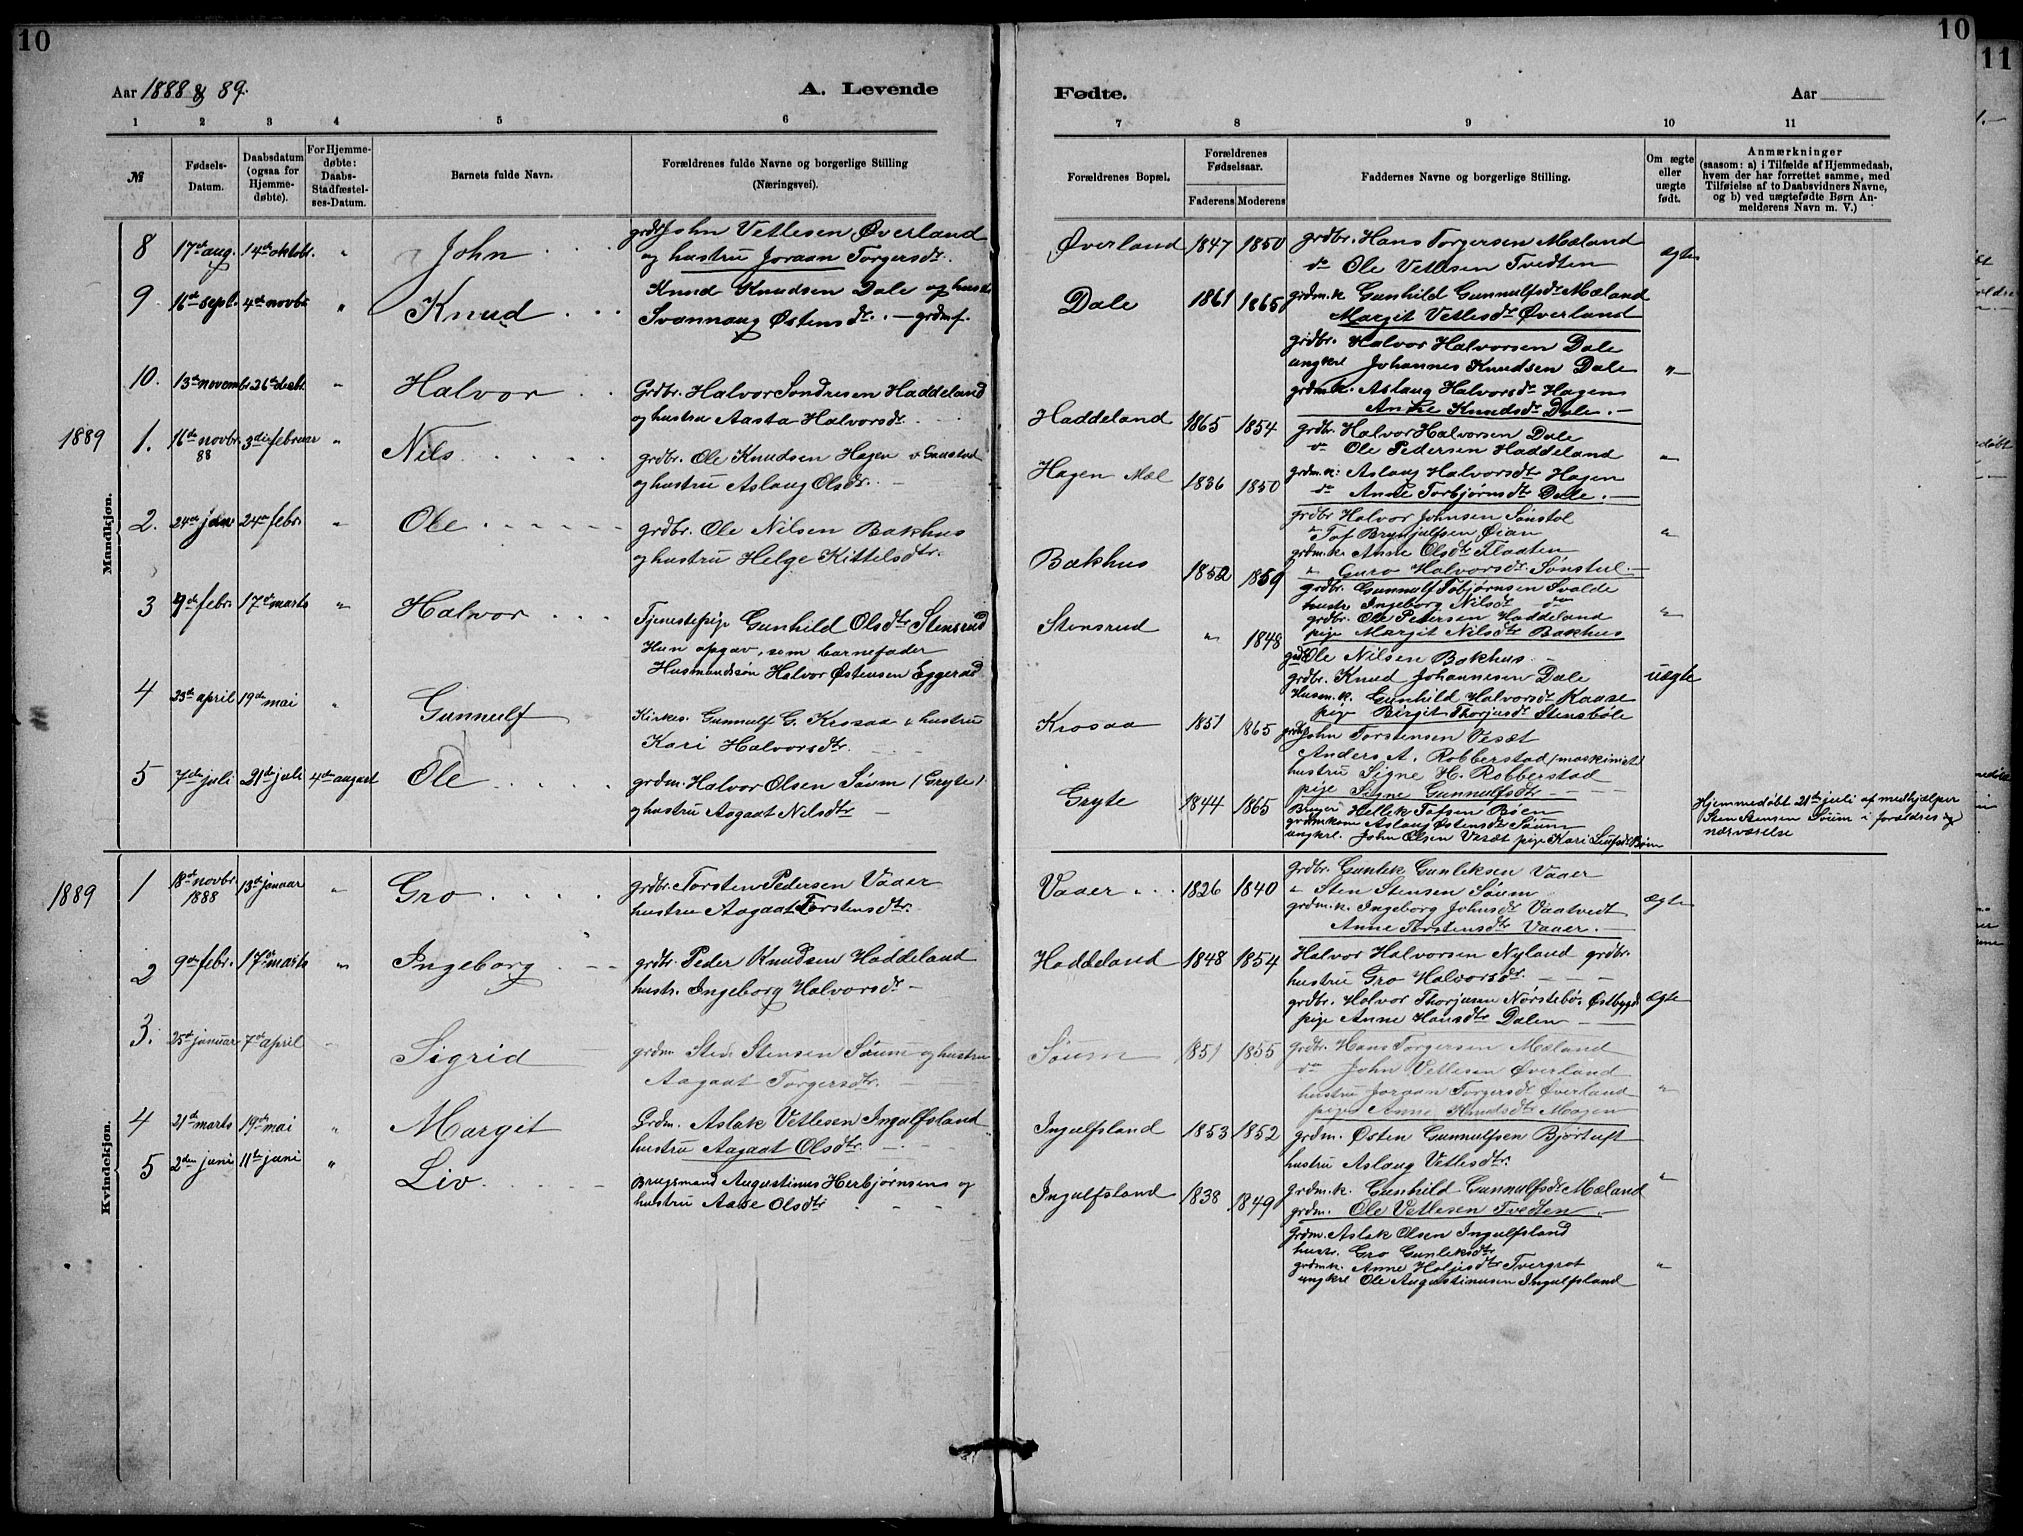 10
10
11
Aar 1888 & 89.
A. Levende
Fødte.
Aar
1 2 3 4 5 6
7 8 9 10 11
№
Fødsels-Datum.
Daabsdatum (ogsaa for Hjemme-døbte).
For Hjemme-døbte: Daabs-Stadfæstel-ses-Datum.
Barnets fulde Navn.
Forældrenes fulde Navne og borgerlige Stilling (Næringsvei).
Forældrenes Bopæl.
Forældrenes Fødselsaar.
Faderens Moderens
Faddernes Navne og borgerlige Stilling.
Om ægte eller uægte født.
Anmærkninger
(saasom: a) i Tilfælde af Hjemmedaab,
hvem der har forrettet samme, med
Tilføielse af to Daabsvidners Navne,
og b) ved uægtefødte Børn An-
melderens Navn m. V.)
Mandkjøn.
8 17de aug. 14de oktobr. " John
grdbr John Vetlesen Øverland
og hustru Joraan Torgersdr.
Øverland 1847 1850
grdbr. Hans Torgersen Mæland
do Ole Vetlesen Tvedten
grdm.k. Gunhild Gunnulfsdr Mæland
Margit Vetlesdr Øverland
ægte
9 16de septr. 4de novbr " Knud
Knud Knudsen Dale og hustr
Svannaug Østensdr. - grdmf.
Dale 1861 1865
grdbr. Halvor Halvorsen Dale
ungkrl Johannes Knudsen Dale
grdm.k. Aslaug Halvorsdr Hagen
Anne Knudsdr Dale.
"
10. 13de novembr. 26de decbr. " Halvor
Grdbr. Halvor Sondresen Haddeland
og hustru Aasta Halvorsdr.
Haddeland 1865 1854
grdbr. Halvor Halvorsen Dale
do Ole Pedersen Haddeland
grdm.k. Aslaug Halvorsdtr Hagen
do Anne Torbjørnsdtr Dale.
"
1889
1. 16de novbr. 88 3die februar " Nils
grdbr. Ole Knudsen Hagen
og hustru Aslaug Olsdr.
Hagen Mæl 1836 1850
grdbr Halvor Johnsen Sønstol
" Tof Brynjulfsen Øian
grdm.k. Anne Olsdtr Flaaten
" Guro Halvorsdr. Sønstul.
"
2. 24de jan 24de febr. " Ole
grdbr. Ole Nilsen Bakhus
og hustru Helge Kittelsdtr.
Bakhus 1852 1859
grdbr. Gunnulf Tobjørnsen Svalde
hustr. Ingeborg Nilsdr do
grdbr. Ole Petersen Haddeland
pige Margit Nilsdtr Bakhus
"
3 9de febr. 17de marts " Halvor
Tjenestepige Gunhild Olsdtr Stensrud
Hun opgav, som barnefader
Husmandssøn Halvor Østensen Eggerud
Stensrud " 1848
grdbr Ole Nilsen Bakhus
grdbr. Knud Johannesen Dale
Husm.k. Gunhild Halvorsdr Kaase
pige Birgit Thorjusdr Stensbøle
uægte
4 23de april 19de mai " Gunnulf
Kirkes. Gunnulf G. Krosaa & hustru
Kari Halvorsdtr.
Krosaa 1851 1865
grdbr John Torstensen Vesæt
Anders A. Robberstad (maskinist)
hustru Signe H. Robberstad
pige Signe Gunnulfsdtr
5 7de juli 21de juli 4de august Ole
grdm. Halvor Olsen Søum (Gryte)
og hustru Aagaat Nilsdtr
Gryte 1844 1865
Bruger Hellek Tofsen Bøen
grdmkone Aslaug Østensdr Søum
ungkrl. John Olsen Vesæt pige Kari
Hjemmedøbt 21de juli af medhjælper
Sten Stensen Søum i forældres og
nærværelse
Kvindekjøn.
1889
1 18de novbr. 1888 13de januar " Gro
grdbr. Torsten Pedersen Vaaer
hustru Aagaat Torstensdtr.
Vaaer 1826 1840
grdbr. Gunlek Gunleksen Vaaer
" Sten Stensen Søum
grdm.k. Ingeborg Johnsdr Vaatvedt
Anne Torstensdtr Vaaer.
ægte
2 9de febr. 17de marts " Ingeborg
grdbr. Peder Knudsen Haddeland
hustr. Ingeborg Halvorsdr.
Haddeland 1848 1854
Halvor Halvorsen Nyland grdbr.
hustru Gro Halvorsdr.
grdbr. Halvor Thorjusen Nørstebø, Østbygd
pige Anne Hansdtr Dalen
ægte
3. 25de januar 7de april " Sigrid
grdm Sten Stensen Søum og hustru
Aagaat Torgersdtr.
Søum 1851 1855
grdbr. Hans Torgersen Mæland
do John Vetlesen Øverland
hustru Joraan Torgersdr Øverland
pige Anne Knudsdtr Mogen
"
4 21de marts 19de mai " Margit
Grdm. Aslak Vetlesen Ingulfsland
hustru Aagaat Olsdtr.
Ingulfsland 1853 1852
grdm. Østen Gunnulfsen Bjørtuft
hustru Aslaug Vetlesdtr.
grdm.k. Gunhild Gunnulfsdr Mæland
grdm. Ole Vetlesen Tvedten
"
5 2den juni 11te juni " Liv
Brugsmand Augustinus Herbjørnsens og
hustru Aase Olsdtr
Ingulfsland 1838 1849
Grdm. Aslak Olsen Ingulfsland
hustr. Gro Gunleksdtr
grdm.k. Anne Holjesdtr Tvergrot
ungkrl Ole Augustinusen Ingulfsland
"